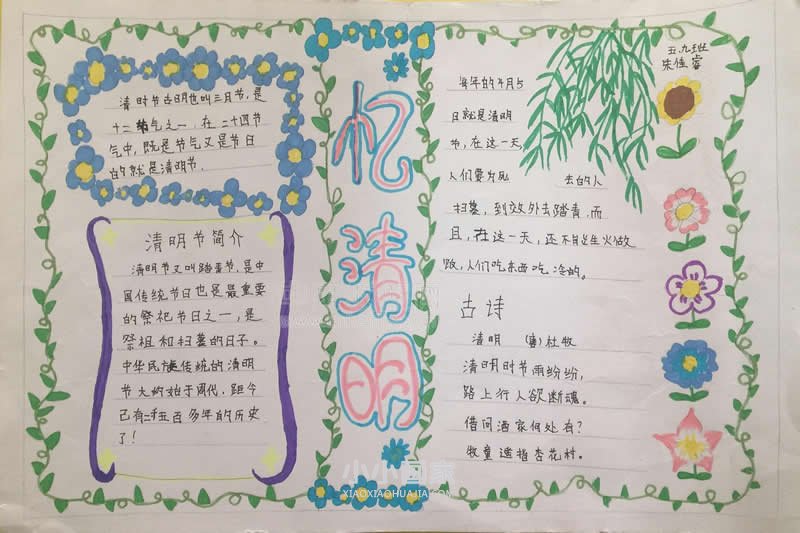 清时节古明也叫三月节,是
十二节气之一,在二十四节
气中,既是节气又是节日
的就是清明节.
清明节简介
清明节又叫踏青节,是中
国传统节日也是最重要
的祭祀节日之一,是
祭祖和扫墓的日子。
中华民族传统的清明
节大约始于周代,距今
已有二千五百多年的历史
了!
忆清明
五.九班
朱佳睿
每年的4月5
日就是清明
节,在这一天,
人们要为 去的人
扫墓,到效外去踏青,而
且,在这一天,还不生火做
饭,人们吃东西吃冷的。
古诗
清明 (唐)杜牧
清明时节雨纷纷,
路上行人欲断魂。
借问酒家何处有?
牧童遥指杏花村。
小小画家
XIAOXIAOHUAJIA.COM